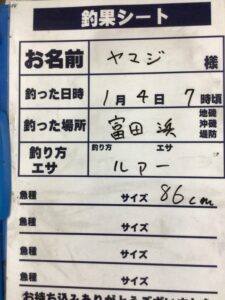 釣果シート
お名前 ヤマジ 様
釣った日時 1月4日 7時頃
釣った場所 富田浜 地磯 沖磯 堤防
釣り方 エサ 釣り方 エサ ルアー
魚種 サイズ 86cm
魚種 サイズ
魚種 サイズ
魚種 サイズ
お持ち込みありがとうございました